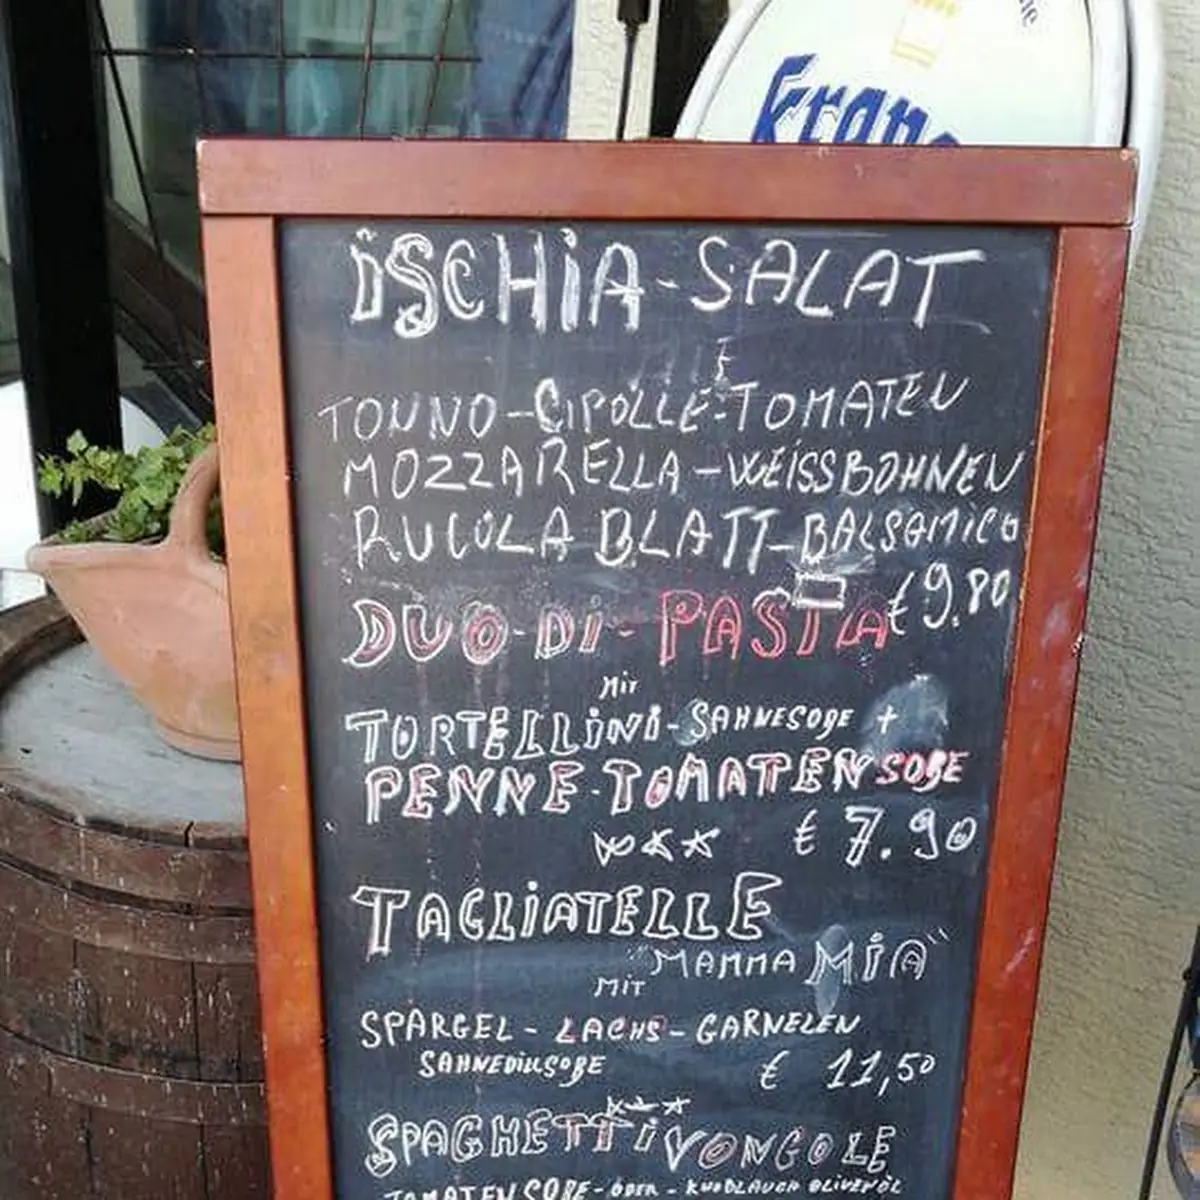 Krane
ISCHIA-SALAT
TONNO-CIPOLLE-TOMATEN
MOZZARELLA-WEISSBOHNEN
RUCOLA BLATT-BALSAMICO
€9.80
DUO-DI-PASTA
MIT
TORTELLINI-SAHNESOßE +
PENNE-TOMATENSOßE
€ 7.90
TAGLIATELLE
"MAMMA MIA"
MIT
SPARGEL-LACHS-GARNELEN
SAHNEDILLSOßE € 11,50
SPAGHETTI VONGOLE
TOMATENSOßE-ODER-KNOBLAUCH OLIVENÖL